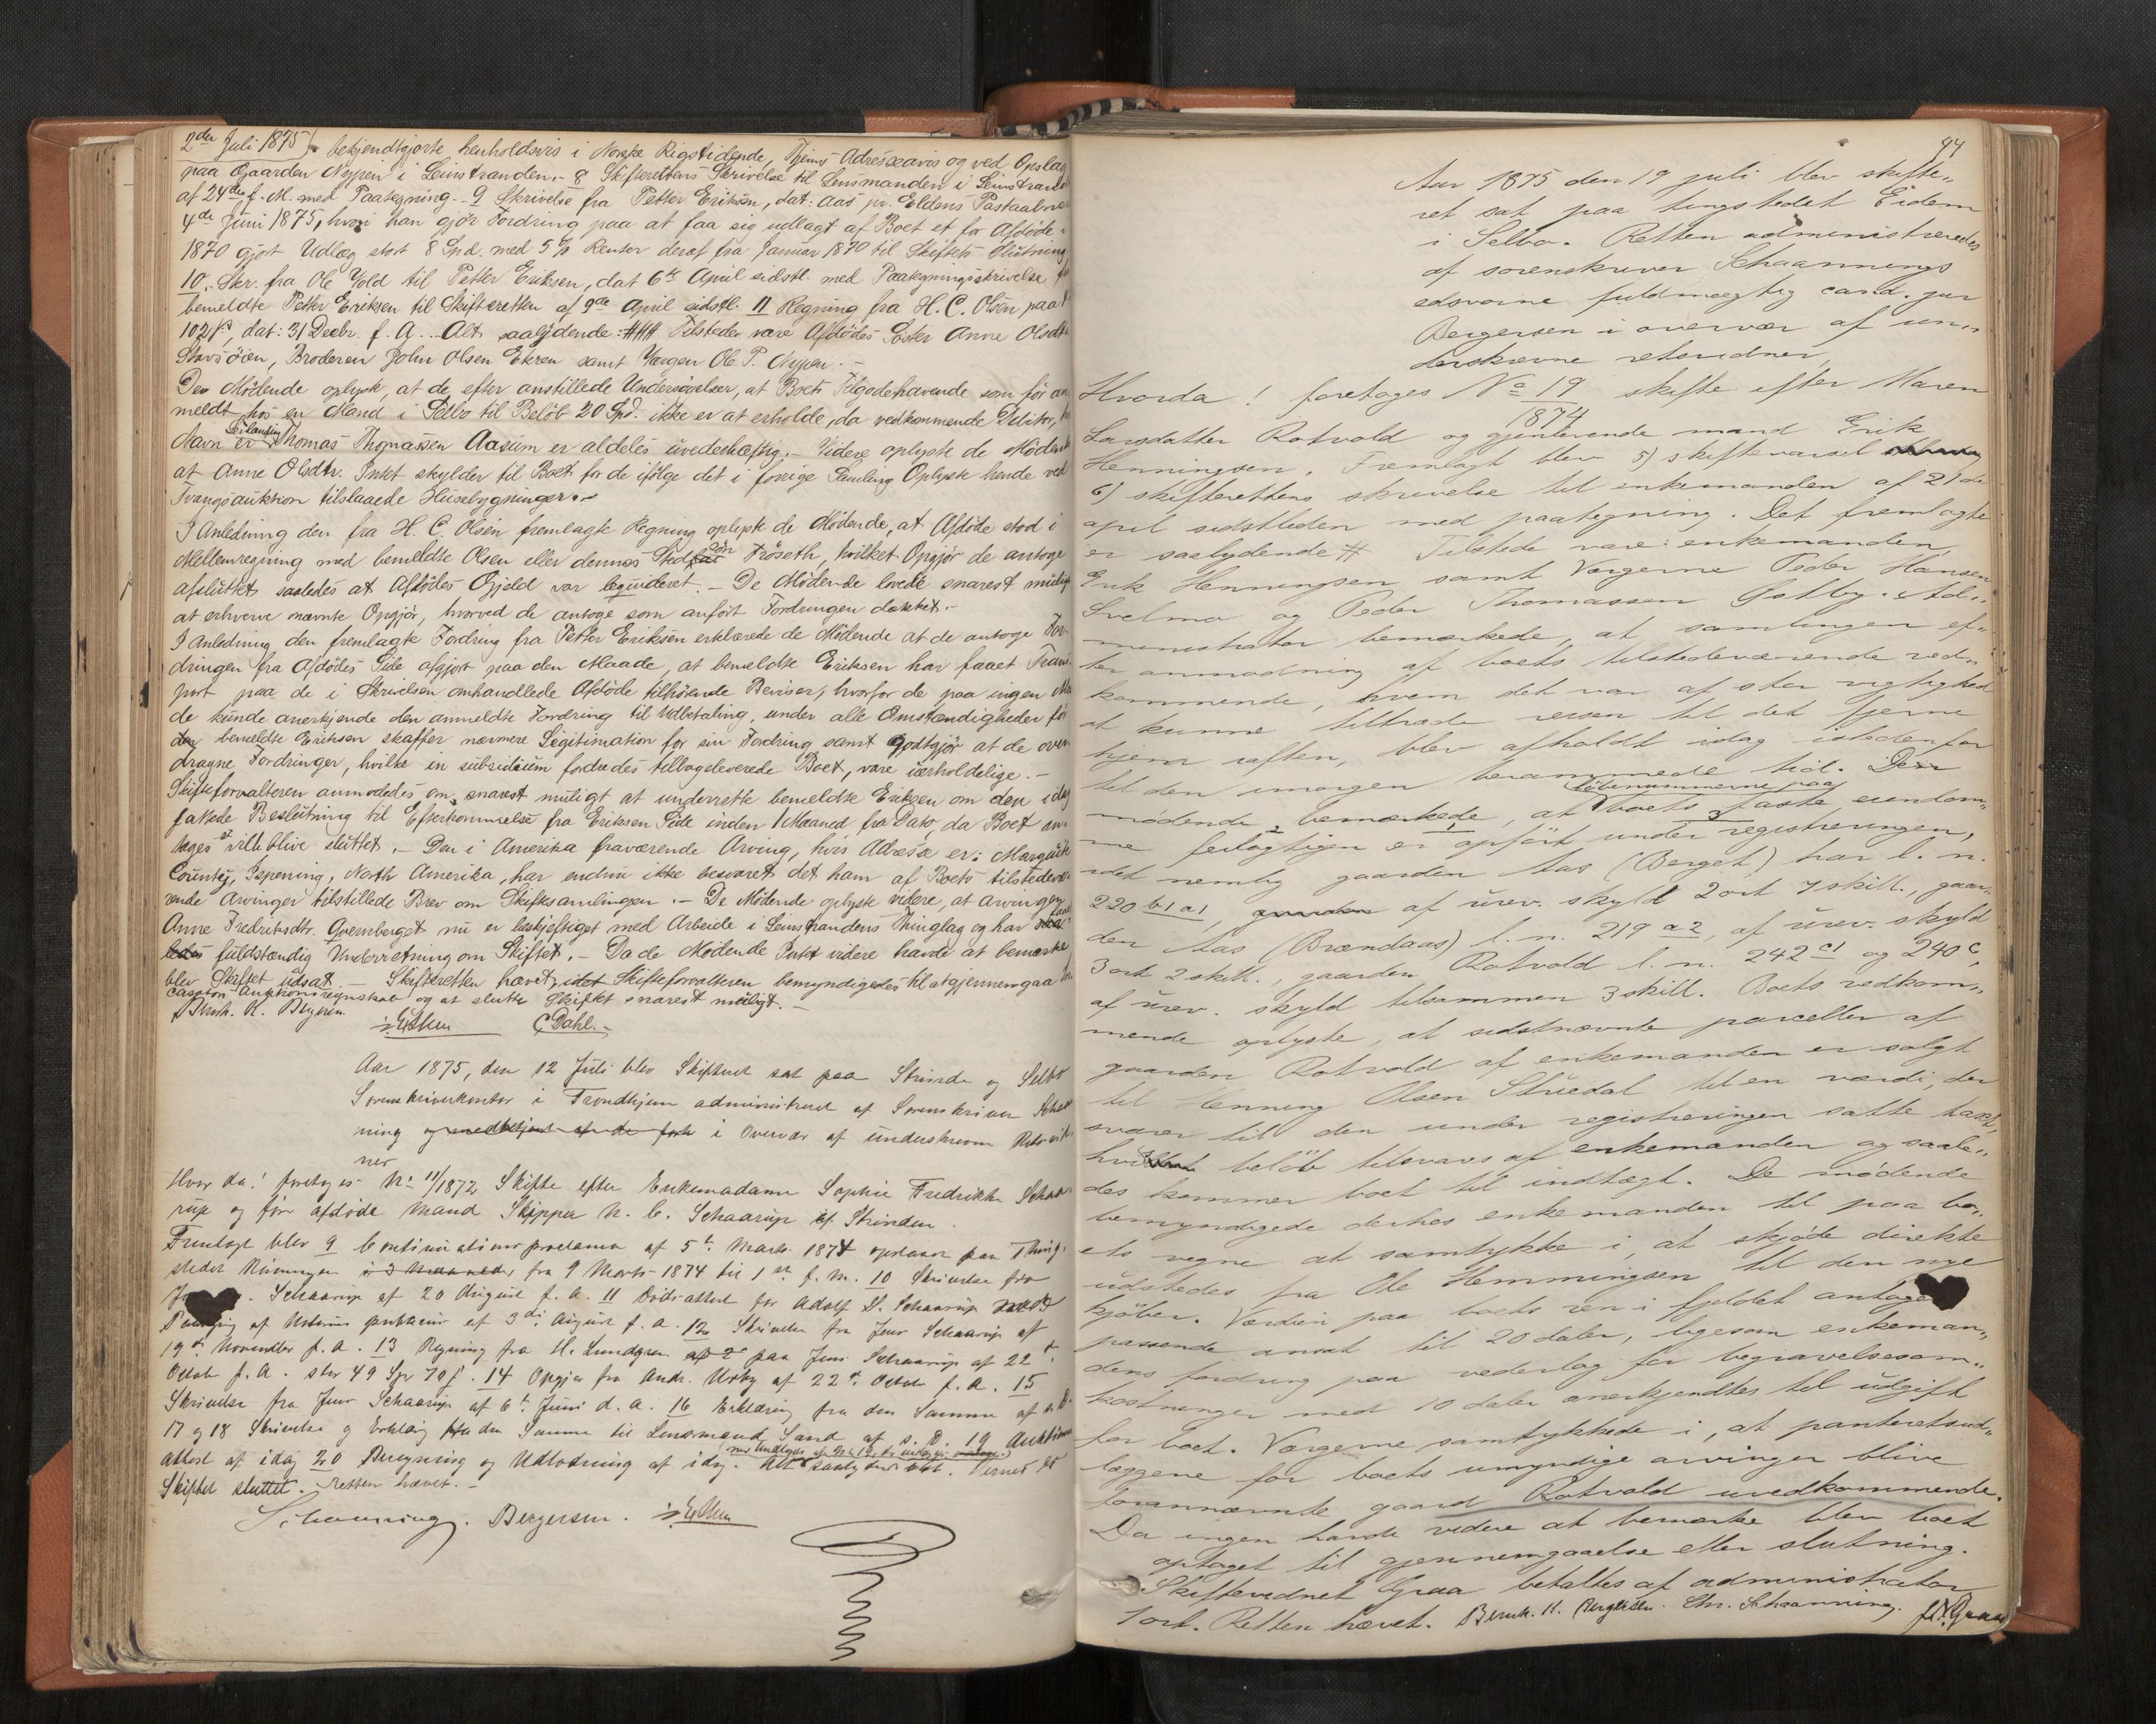 2den Juli 1875 bekjendtgjorte henholdsvis i Norske Rigstidende, Thjems Adresseavis og ved Opslag
paa Gaarden Nypen i Leinstranden. 8 Skifterettens Skrivelse til Lensmanden i Leinstranden
af 24de f. M. med Paategning. 9 Skrivelse fra Petter Eriksen, dat: Aas pr. Eldens
4de Juni 1875, hvori han gjør Fordring paa at faa sig udlagt af Boet et for Afdøde i
1870 gjort Udlæg stort 8 Spd. med 5 % Renter deraf fra Januar 1870 til Skiftets Slutning
10. Skr. fra Ole Gold til Petter Eriksen, dat 6te April sidstl. med Paategningsskrivelse fra
bemeldte Petter Eriksen til Skifteretten af 9de April sidstl. 11 Regning fra H. C. Olsen paa
102 ß, dat: 31 Decbr. f. A. Alt saalydende: ### Tilstede vare Afdødes Søster Anne Olsdtr.
Stavsøien, Broderen John Olsen Ekren samt Værgen Ole P. Nypen.
De Mødende oplyste, at de, efter anstillede Undersøgelser, at Boets Tilgodehavende som før an
meldt hos en Mand i Selbo til Beløb 20 Spd. ikke er at erholde, da vedkommende Debitor,
Navn er Thomas Thomassen Aasum er aldeles uvederhæftig. Videre oplyste de Mødende
at Anne Olsdtr. Intet skylder til Boet for de ifølge det i forrige Samling Oplyste hende ved
Tvangsauktion tilslaaede Husebygninger.
I Anledning den fra H. C. Olsen fremlagte Regning oplyste de Mødende, at Afdøde stod i
Mellemregning med bemeldte Olsen eller dennes Stedsøn Frøseth, hvilket Opgjør de antoge
afsluttet saaledes at Afdødes Gjæld var liquideret. De Mødende lovede snarest muligt
at erhverve nævnte Opgjør, hvorved de antoge som anført Fordringen dækket.
I Anledning den fremlagte Fordring fra Petter Eriksen erklærede de Mødende at de antoge For
dringen fra Afdødes Side afgjort paa den Maade, at bemeldte Eriksen har faaet Trans
port paa de i Skrivelsen omhandlede Afdøde tilhørende Beviser, hvorfor de paa ingen Maa
de kunde anerkjende den anmeldte Fordring til Udbetaling, under alle Omstændigheder før
bemeldte Eriksen skaffer nærmere Legitimation for sin Fordring samt godtgjør at de over
dragne Fordringer, hvilke en subsidium fordredes tilbageleverede Boet, vare uerholdelige.
Skifteforvalteren anmodedes om snarest muligt at underrette bemeldte Eriksen om den idag
fattede Beslutning til Efterkommelse fra Eriksen Side inden 1 Maaned fra Dato, da Boet an
tages at ville blive sluttet. Den i Amerika fraværende Arving, hvis Adresse er: Marquitte
Countey, Ispening, North Amerika, har endnu ikke besvaret det ham af Boets tilstedevæ
rende Arvinger tilstillede Brev om Skiftesamlingen. De Mødende oplyste videre, at arvingen
Anne Fredriksdtr. Qvernberget nu er beskjeftiget med Arbeide i Leinstrandens Thinglag og har faaet
fuldstændig Underretning om Skiftet. Da de Mødende Intet videre havde at bemærke
blev Skiftet udsat. Skifteretten hævet, idet Skifteforvalteren bemyndigedes til at gjennemgaa
Auktionsregnskab og at slutte Skiftet snarest muligt.
C Dahl.
Aar 1875, den 12 Juli blev Skifteret sat paa Strinda og Selbo
Sorenskriverkontor i Trondhjem administreret af Sorenskriver Schaan
ning i Overvær af underskrevne Retsvid
ner
Hvor da! foretoges No 11/1872 Skifte efter Enkemadame Sophie Fredrikke Schaa
rup og før afdøde Mand Skipper N. C. Schaarup af Strinden.
Fremlagt blev 9 Continuationsproclama af 5te Marts 1874 opslaaet paa Thing
stedet fra 9 Marts 1874 til 1ste f. M. 10 Skrivelse fra
Schaarup af 20 August f. A. 11 Dødsattest for Adolf S. Schaarup med
af 3die August f. a. 12 Skrivelse fra Jens Schaarup af
19de November f. a. 13 Regning fra H. Lundgren paa Jens Schaarup af 22de
Octob f. A. stor 49 Spr 70 ß. 14 Opgjør fra Andr. Ursby af 22de Octob f. a. 15
Skrivelse fra Jens Schaarup af 6te Juni d. A. 16 Erklæring fra den Samme af s. D.
17 og 18 Skrivelse og Erklæring fra den Samme til Lensmand Sand af s. D. 19 Auktions
attest af idag 20 Beregning og Udlodning af idag. Alt saalydende. Dermed er
Skiftet sluttet. Retten hævet.
Schaanning. Bergersen.
94
Aar 1875 den 19 juli blev skifte„
ret sat paa tingstedet Eidem
i Selbo. Retten administreredes
af sorenskriver Schaannings
edsvorne fuldmægtig cand. jur
Bergersen i overvær af un„
derskrevne retsvidner,
Hvorda! foretages No 19/1874 skifte efter Maren
Larsdatter Rotvold og gjenlevende mand Erik
Henningsen. Fremlagt blev 5) skiftevarsel
6) skifterettens skrivelse til enkemanden af 21de
april sidstleden med paategning. Det fremlagte
er saalydende # Tilstede vare: enkemanden
Erik Henningsen samt Værgerne Peder Hansen
Svelmo og Peder Thomassen Gotby. Ad„
ministrator bemærkede, at samlingen ef„
ter anmodning af boets tilstedeværende ved„
kommende, hvem det var af stor vigtighed
at kunne tiltræde reisen til det fjerne
hjem iaften, blev afholdt idag istedenfor
til den imorgen berammede tid. De
mødende bemærkede, at løbenummerne paa boets 3 faste eiendom„
me feilagtigen er opført under registreringen,
idet nemlig gaarden Aas (Berget) har l. n.
220 b1 a1, af urev. skyld 2 ort 7 skill., gaar„
den Aas (Brændaas) l. n. 219 a 2, af urev. skyld
3 ort 2 skill., gaarden Rotvold l. n. 242 c1 og 240 c,
af urev. skyld tilsammen 3 skill. Boets vedkom„
mende oplyste, at sidstnævnte parceller af
gaarden Rotvold af enkemanden er solgt
til Henning Olsen Stuedal til en værdi, der
svarer til den under registreringen satte taxt,
hvilket beløb tilsvares af enkemanden og saale„
des kommer boet til indtægt. De mødende
bemyndigede derhos enkemanden til paa bo„
ets vegne at samtykke i, at skjøde direkte
udstedes fra Ole Hemmingsen til den nye
kjøber. Værdien paa boets ren i fjeldet antages
passende ansat til 20 daler, ligesom enkeman„
dens fordring paa vederlag for begravelsesom„
kostninger med 10 daler anerkjendtes til udgift
for boet. Værgerne samtykkede i, at panteretsud„
læggene for boets umyndige arvinger blive
forannævnte gaard Rotvold uvedkommende.
Da ingen havde videre at bemærke blev boet
optaget til gjennemgaaelse eller slutning.
Skiftevidnet Graa betaltes af administrator
1 ort. Retten hævet. Bernh. H. Bergersen. Chr. Schaanning.